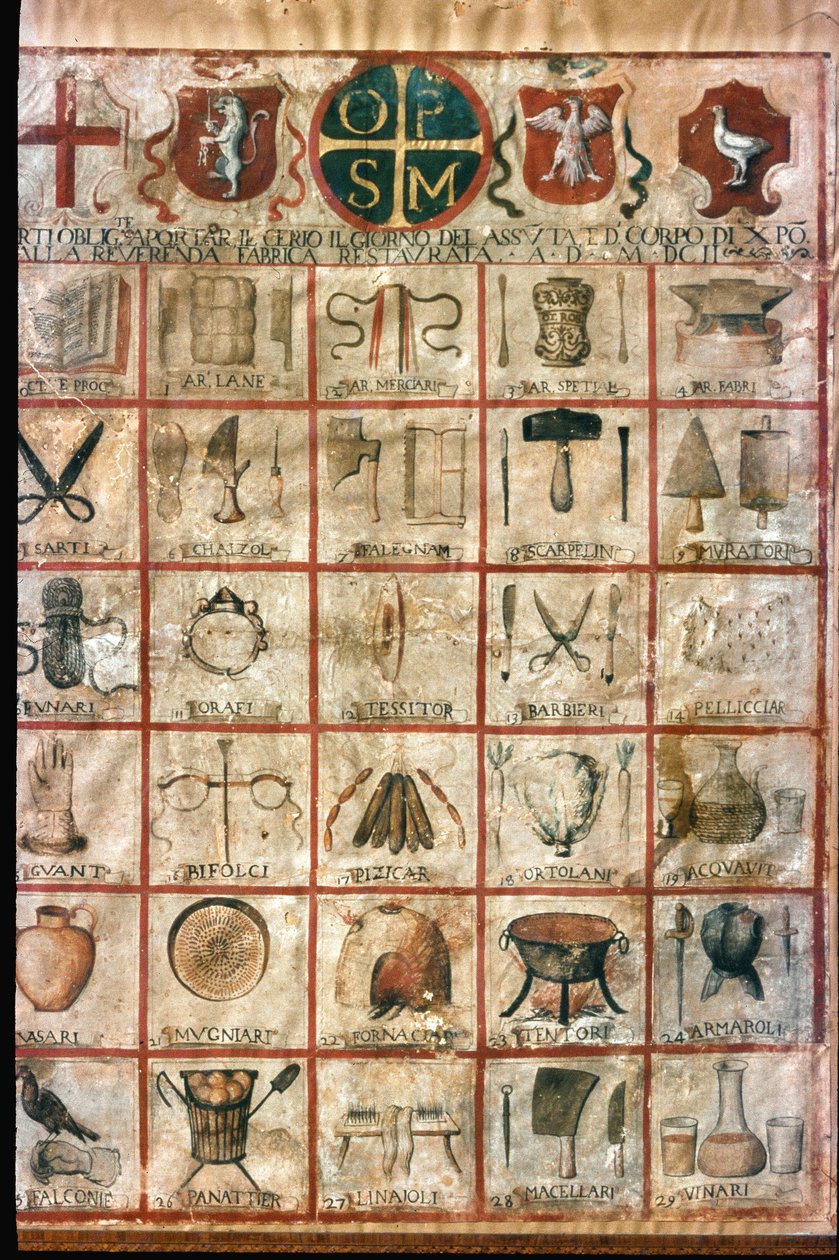 O P
S M
RTI OBLIG.TE APORTAR, IL CERIO IL GIORNO DEL ASSVTA, E D' CORPO DI XPÕ.
ALLA REVERENDA FABRICA RESTAVRATA. · A · D · M · DCII
CT. E PROC.
1 AR. LANE
2 AR. MERCIARI
3 AR. SPETIAL
DI ROS
4 AR. FABRI
SARTI
6 CHALZOL
7 FALEGNAM
8 SCARPELIN
9 MVRATORI
FVNARI
11 ORAFI
12 TESSITOR
13 BARBIERI
14 PELLICCIAR
GVANT
16 BIFOLCI
17 PIZICAR
18 ORTOLANI
19 ACQVAVIT
VASARI
21 MVGNIARI
22 FORNACIA
23 TENTORI
24 ARMAROLI
5 FALCONIE
26 PANATTIER
27 LINAIOLI
28 MACELLARI
29 VINARI